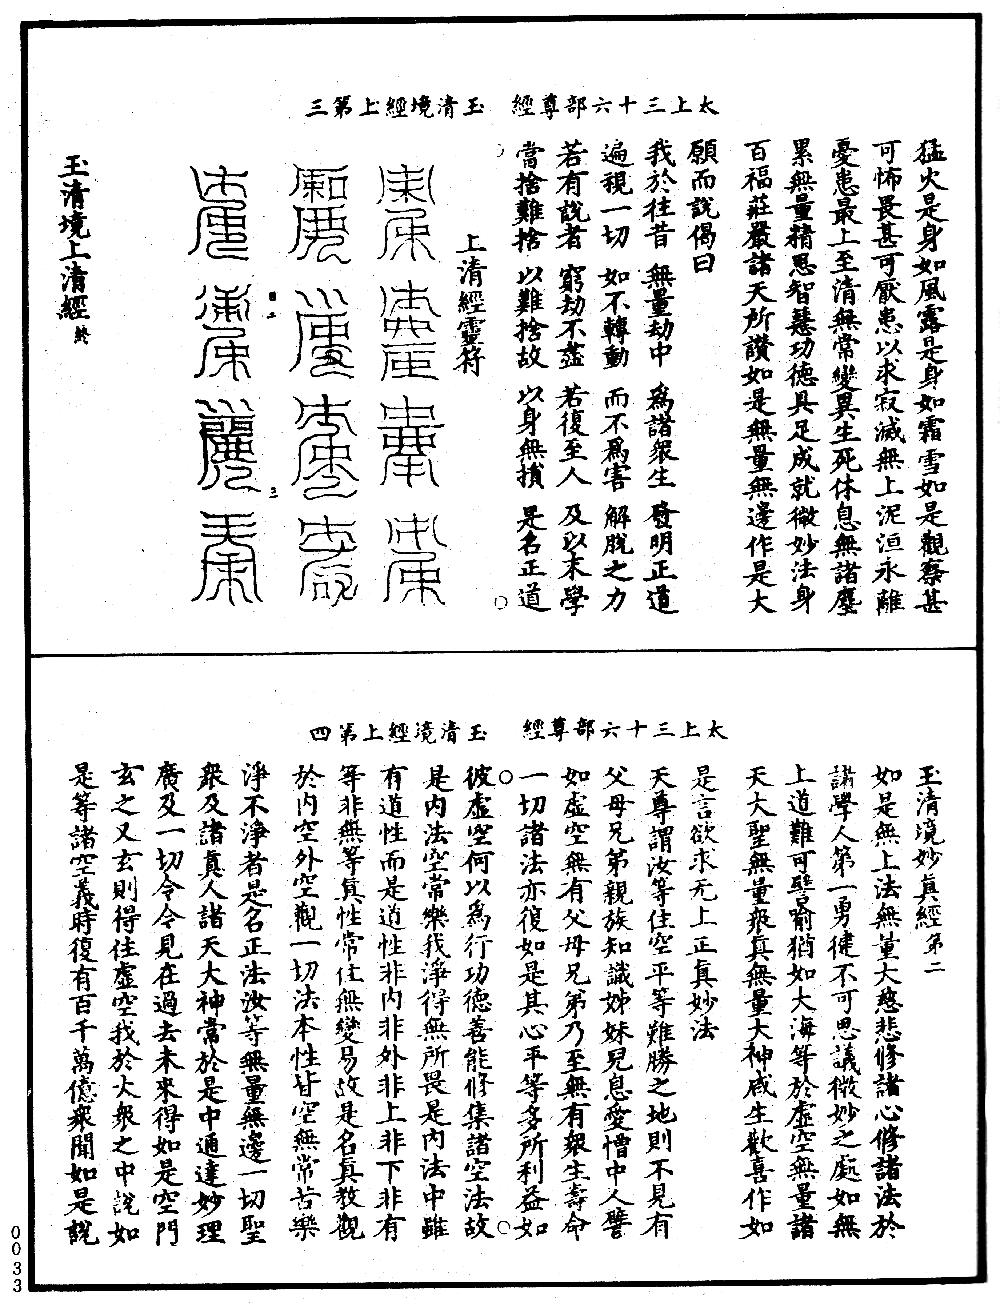 太上三十六部尊經　玉清境經上第三
猛火是身如風露是身如霜雪如是觀察甚
可怖畏甚可厭患以求寂滅無上泥洹永離
憂患最上至清無常變異生死休息無諸塵
累無量精思智慧功德具足成就微妙法身
百福莊嚴諸天所讚如是無量無邊作是大
願而說偈曰
我於往昔　無量劫中　為諸衆生　發明正道
遍視一切　如不轉動　而不為害　解脫之力
若有說者　窮劫不盡　若復至人　及以末學
當捨難捨　以難捨故　以身無損　是名正道
上清經靈符
玉清境上清經終
太上三十六部尊經　玉清境經上第四
玉清境妙真經第二
如是無上法無量大慈悲修諸心修諸法於
諸學人第一勇健不可思議微妙之處如無
上道難可譬喻猶如大海等於虛空無量諸
天大聖無量衆真無量大神咸生歡喜作如
是言欲求无上正真妙法
天尊謂汝等住空平等難勝之地則不見有
父母兄弟親族知識姊妹兒息愛憎中人譬
如虛空無有父母兄弟乃至無有衆生壽命
一切諸法亦復如是其心平等多所利益如
彼虛空何以為行功德善能修集諸空法故
是內法空常樂我淨得無所畏是內法中雖
有道性而是道性非內非外非上非下非有
等非無等真性常住無變易故是名真教觀
於內空外空觀一切法本性皆空無常苦樂
淨不淨者是名正法汝等無量無邊一切聖
衆及諸真人諸天大神常於是中通達妙理
廣及一切令令見在過去未來得如是空門
玄之又玄則得住虛空我於大衆之中說如
是等諸空義時復有百千萬億衆聞如是說
0033